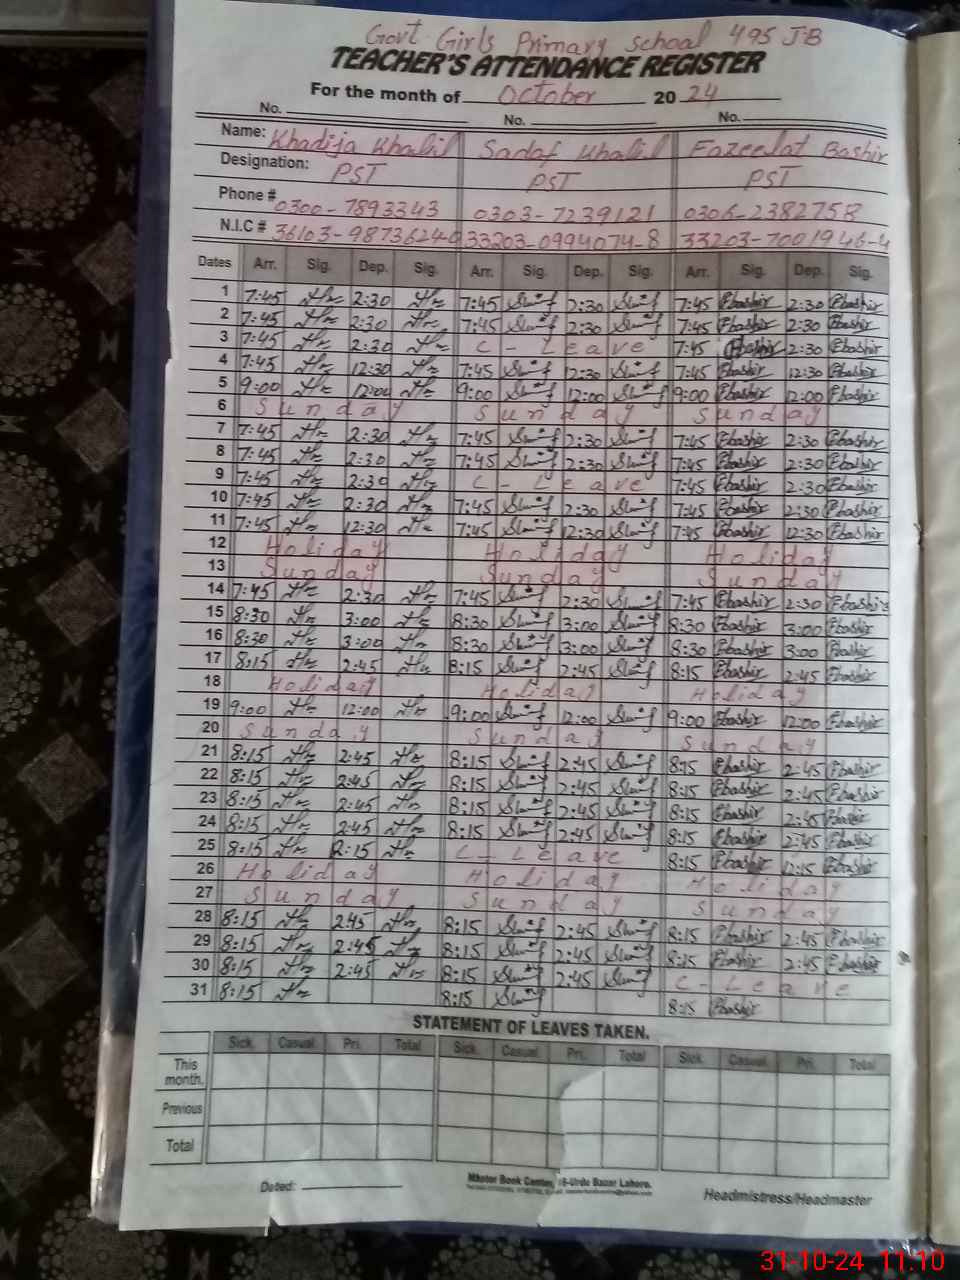 Govt Girls Primary school 495 J.B
TEACHER'S ATTENDANCE REGISTER
For the month of October 2024
No. No. No.
Name: Khadija Khalil Sadaf Khalil Fazeelat Bashir
Designation: PST PST PST
Phone # 0300-7893343 0303-7239121 0306-2382758
N.I.C # 36103-9873624-0 33203-0994074-8 33203-7001946-4
Dates Arr. Sig. Dep. Sig. Arr. Sig. Dep. Sig. Arr. Sig. Dep. Sig.
1 7:45 2:30 7:45 2:30 7:45 Fbashir 2:30 Fbashir
2 7:45 2:30 7:45 2:30 7:45 Fbashir 2:30 Fbashir
3 7:45 2:30 C-Leave 7:45 Fbashir 2:30 Fbashir
4 7:45 12:30 7:45 12:30 7:45 Fbashir 12:30 Fbashir
5 9:00 12:00 9:00 12:00 9:00 Fbashir 12:00 Fbashir
6 Sunday Sunday Sunday
7 7:45 2:30 7:45 2:30 7:45 Fbashir 2:30 Fbashir
8 7:45 2:30 7:45 2:30 7:45 Fbashir 2:30 Fbashir
9 7:45 2:30 C-Leave 7:45 Fbashir 2:30 Fbashir
10 7:45 2:30 7:45 2:30 7:45 Fbashir 2:30 Fbashir
11 7:45 12:30 7:45 12:30 7:45 Fbashir 12:30 Fbashir
12 Holiday Holiday Holiday
13 Sunday Sunday Sunday
14 7:45 2:30 7:45 2:30 7:45 Fbashir 2:30 Fbashir
15 8:30 3:00 8:30 3:00 8:30 Fbashir 3:00 Fbashir
16 8:30 3:00 8:30 3:00 8:30 Fbashir 3:00 Fbashir
17 8:15 2:45 8:15 2:45 8:15 Fbashir 2:45 Fbashir
18 Holiday Holiday Holiday
19 9:00 12:00 9:00 12:00 9:00 Fbashir 12:00 Fbashir
20 Sunday Sunday Sunday
21 8:15 2:45 8:15 2:45 8:15 Fbashir 2:45 Fbashir
22 8:15 2:45 8:15 2:45 8:15 Fbashir 2:45 Fbashir
23 8:15 2:45 8:15 2:45 8:15 Fbashir 2:45 Fbashir
24 8:15 2:45 8:15 2:45 8:15 Fbashir 2:45 Fbashir
25 8:15 12:15 C-Leave 8:15 Fbashir 12:15 Fbashir
26 Holiday Holiday Holiday
27 Sunday Sunday Sunday
28 8:15 2:45 8:15 2:45 8:15 Fbashir 2:45 Fbashir
29 8:15 2:45 8:15 2:45 8:15 Fbashir 2:45 Fbashir
30 8:15 2:45 8:15 2:45 C-Leave
31 8:15 8:15 8:15 Fbashir
STATEMENT OF LEAVES TAKEN.
Sick. Casual. Pri. Total Sick. Casual. Pri. Total Sick. Casual. Pri. Total
This month.
Previous
Total
Dated:
Master Book Center, 16-Urdu Bazar Lahore.
Headmistress/Headmaster
31-10-24 11:10